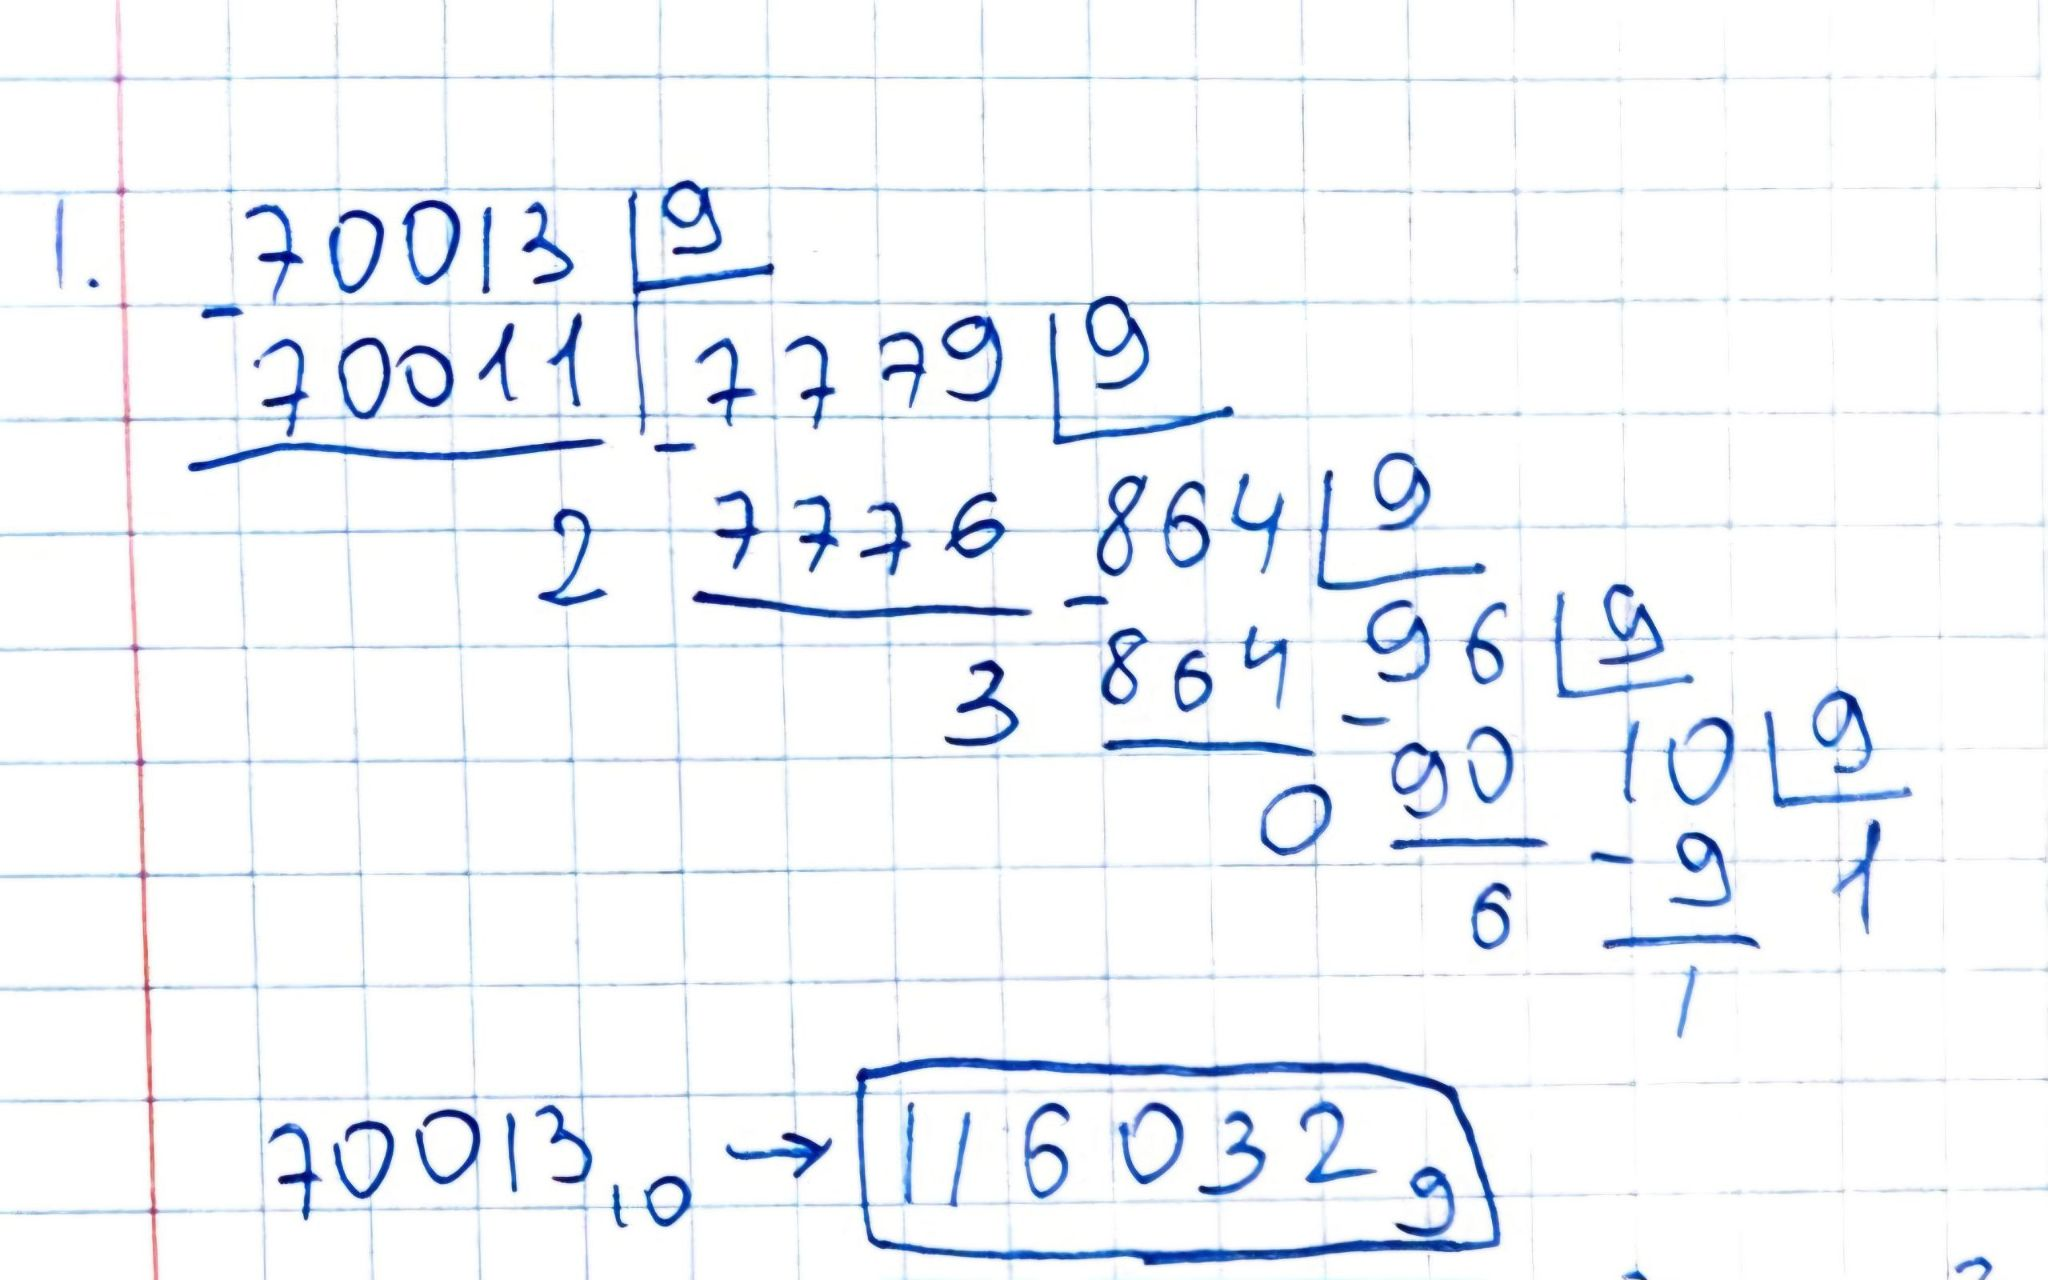 1. 70013 | 9
- 70011 | 7779 | 9
2 - 7776 864 | 9
3 - 864 96 | 9
0 - 90 10 | 9
6 - 9 1
1
70013₁₀ → 116032₉